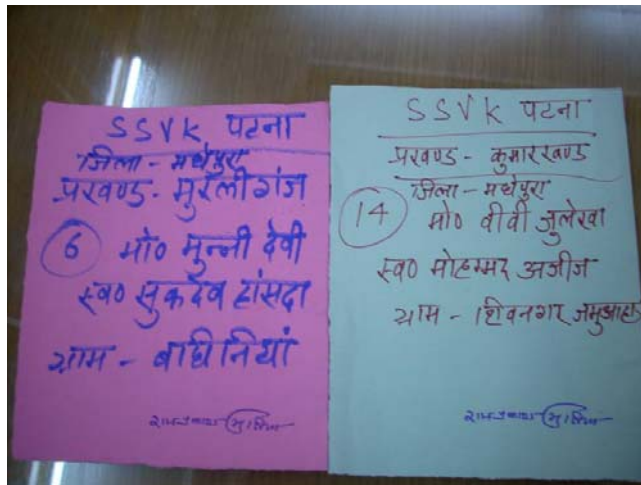 SSVK पटना
जिला - मधेपुरा
प्रखण्ड - मुरलीगंज
6 मो० मुन्नी देवी
स्व० सुकदेव हांसदा
ग्राम - बाघिनियां
SSVK पटना
प्रखण्ड - कुमारखण्ड
जिला - मधेपुरा
14 मो० बीवी जुलेखा
स्व० मोहम्मद अजीज
ग्राम - शिवनगर जमुआहा